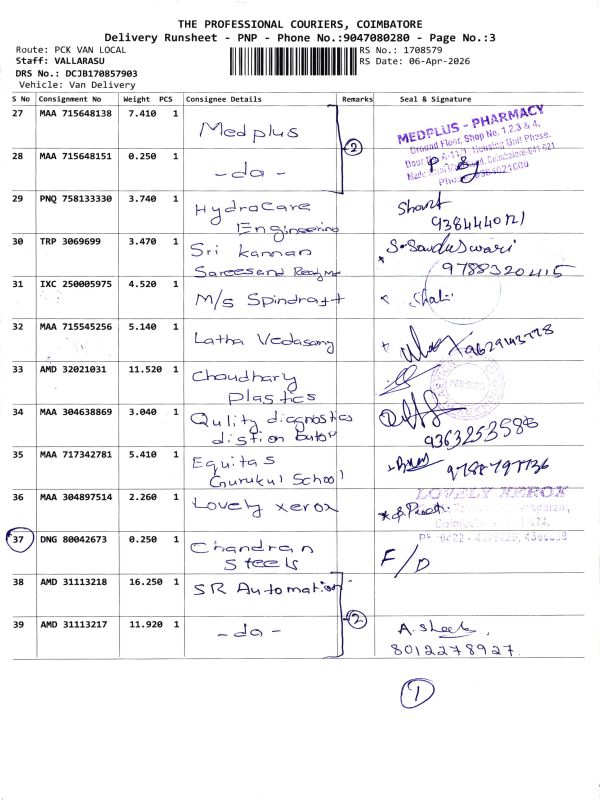 THE PROFESSIONAL COURIERS, COIMBATORE
Delivery Runsheet - PNP - Phone No.:9047080280 - Page No.:3
Route: PCK VAN LOCAL
Staff: VALLARASU
DRS No.: DCJB170857903
Vehicle: Van Delivery
RS No.: 1708579
RS Date: 06-Apr-2026
S No Consignment No Weight PCS Consignee Details Remarks Seal & Signature
27 MAA 715648138 7.410 1 Medplus
2
MEDPLUS - PHARMACY
Ground Floor, Shop No. 1,2,3 & 4,
Housing Unit Phase,
28 MAA 715648151 0.250 1 - do -
29 PNQ 758133330 3.740 1 Hydrocare
Engineering
30 TRP 3069699 3.470 1 Sri kannan
9788320415
31 IXC 250005975 4.520 1 M/s Spindraft
32 MAA 715545256 5.140 1 Latha Vedasamy
33 AMD 32021031 11.520 1 Choudhary
Plastics
34 MAA 304638869 3.040 1 Qulity diagnostics
9363253586
35 MAA 717342781 5.410 1 Equitas
Gurukul School
36 MAA 304897514 2.260 1 Lovely xerox
LOVELY XEROX
37 DNG 80042673 0.250 1 Chandran
Steels
F/D
38 AMD 31113218 16.250 1 SR Automation
2
39 AMD 31113217 11.920 1 - do -
8012278927
1